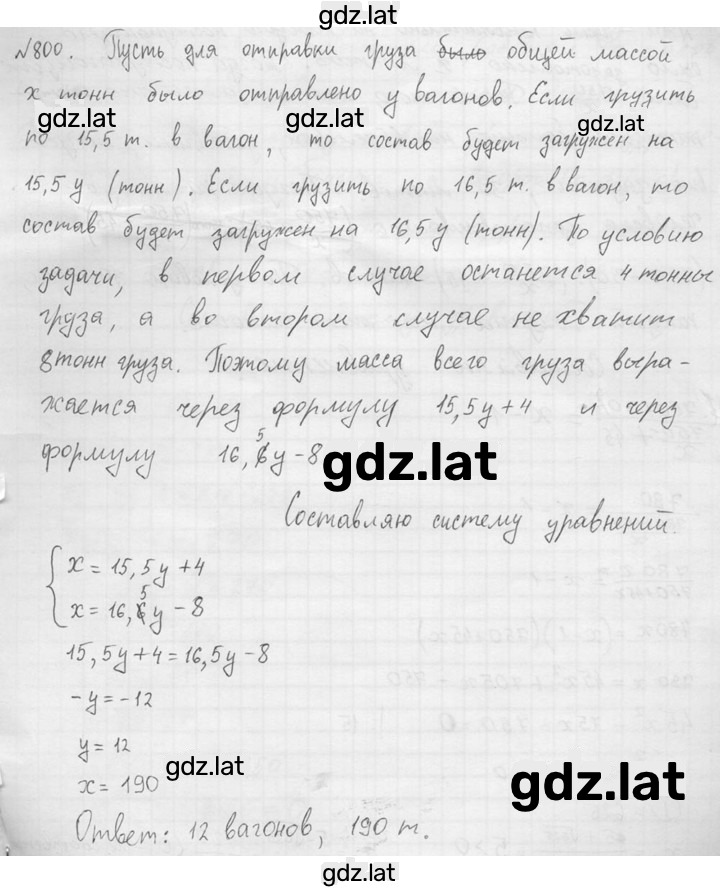 gdz.lat
№800. Пусть для отправки груза было общей массой
х тонн было отправлено у вагонов. Если грузить
gdz.lat gdz.lat gdz.lat
по 15,5 т. в вагон, то состав будет загружен на
15,5 у (тонн). Если грузить по 16,5 т. в вагон, то
состав будет загружен на 16,5 у (тонн). По условию
задачи, в первом случае останется 4 тонны
груза, а во втором случае не хватит
8 тонн груза. Поэтому масса всего груза выра-
жается через формулу 15,5у+4 и через
формулу 16,5у-8
gdz.lat
Составляю систему уравнений.
х = 15,5у+4
х = 16,5у - 8
15,5у+4 = 16,5у-8
-у = -12
у = 12
gdz.lat
х = 190
gdz.lat
Ответ: 12 вагонов, 190 т.
gdz.lat